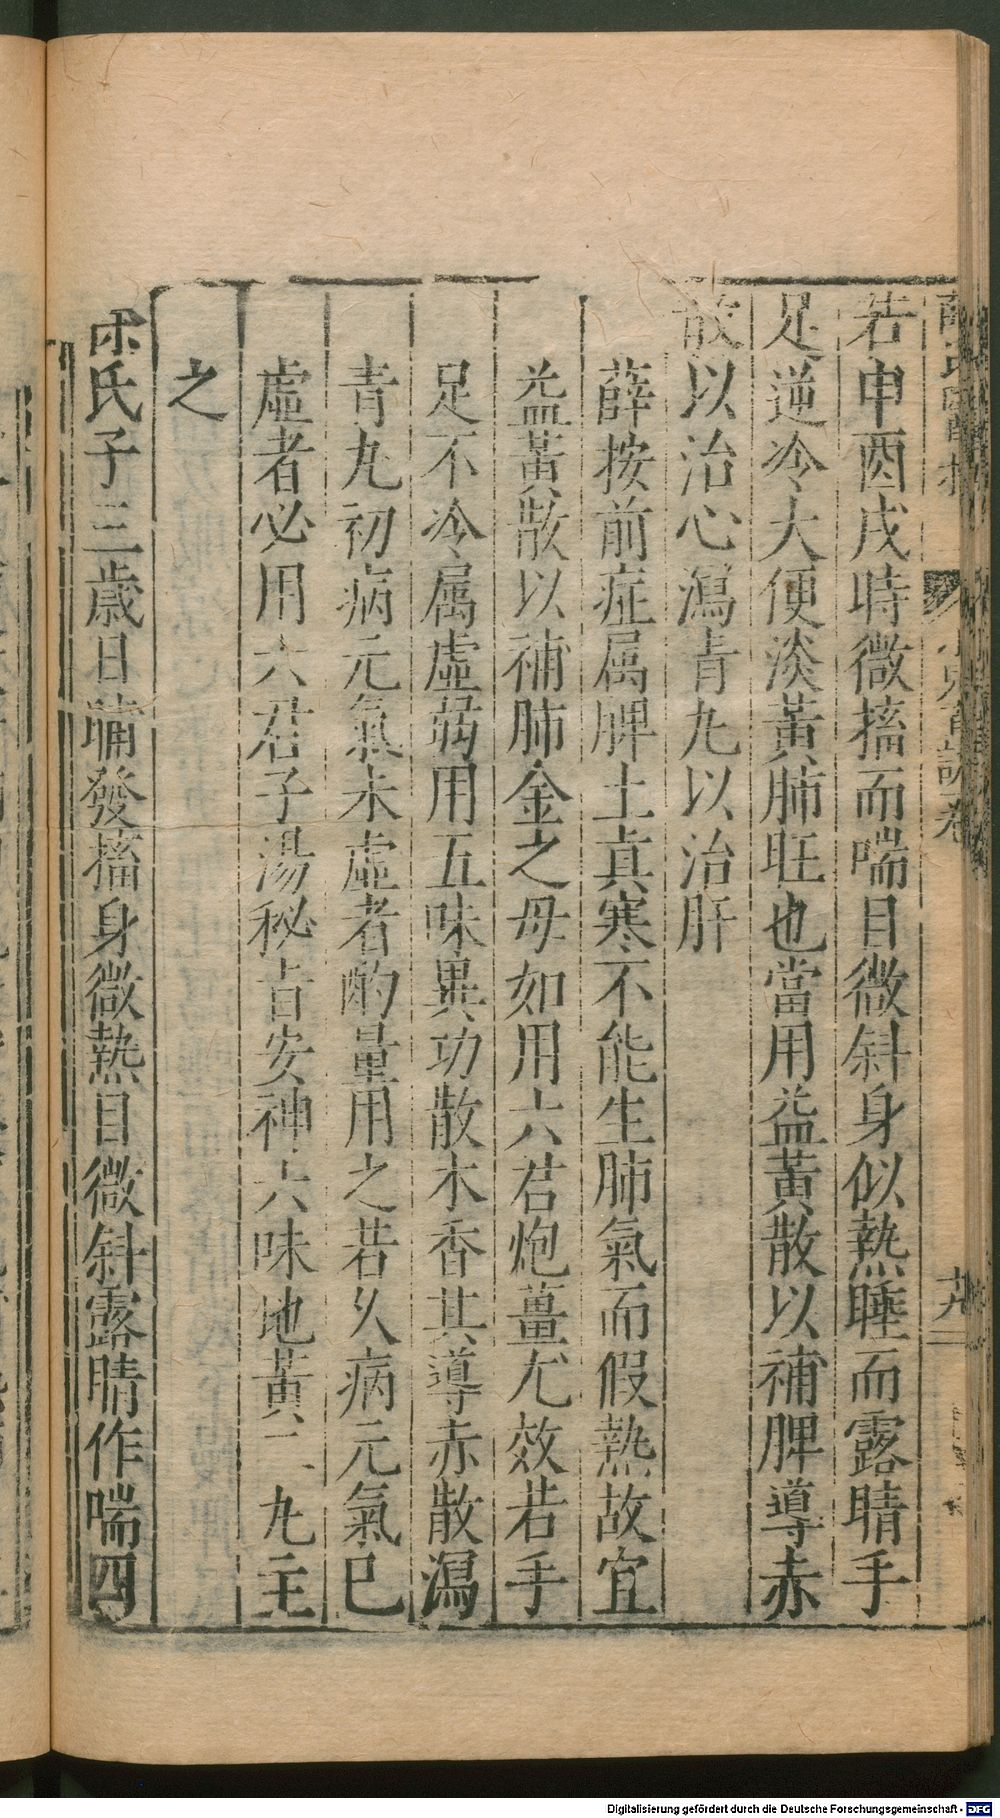 若申酉戌時微搐而喘目微斜身似熱睡而露睛手
足逆冷大便淡黃肺旺也當用益黃散以補脾導赤
散以治心瀉青丸以治肝
薛按前症属脾土真寒不能生肺氣而假熱故宜
益黃散以補肺金之母如用六君炮薑尤效若手
足不冷属虛弱用五味異功散木香其導赤散瀉
青丸初病元氣未虛者酌量用之若久病元氣已
虛者必用六君子湯秘旨安神六味地黃二丸主
之
宋氏子三歲日晡發搐身微熱目微斜露睛作喘四
Digitalisierung gefördert durch die Deutsche Forschungsgemeinschaft - DFG